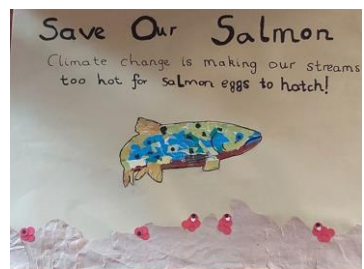 Save Our Salmon
Climate change is making our streams
too hot for salmon eggs to hatch!